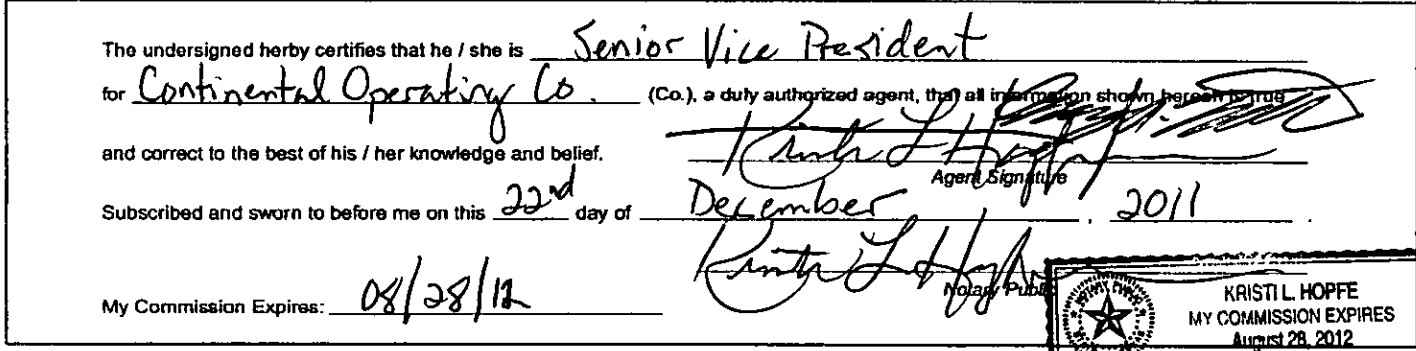 The undersigned herby certifies that he / she is Senior Vice President
for Continental Operating Co. (Co.), a duly authorized agent, that all information shown hereon is true
and correct to the best of his / her knowledge and belief. Kristi L Hopfe
Agent Signature
Subscribed and sworn to before me on this 22nd day of December, 2011.
Kristi L Hopfe
Notary Public
My Commission Expires: 08/28/12
KRISTI L. HOPFE
MY COMMISSION EXPIRES
August 28, 2012